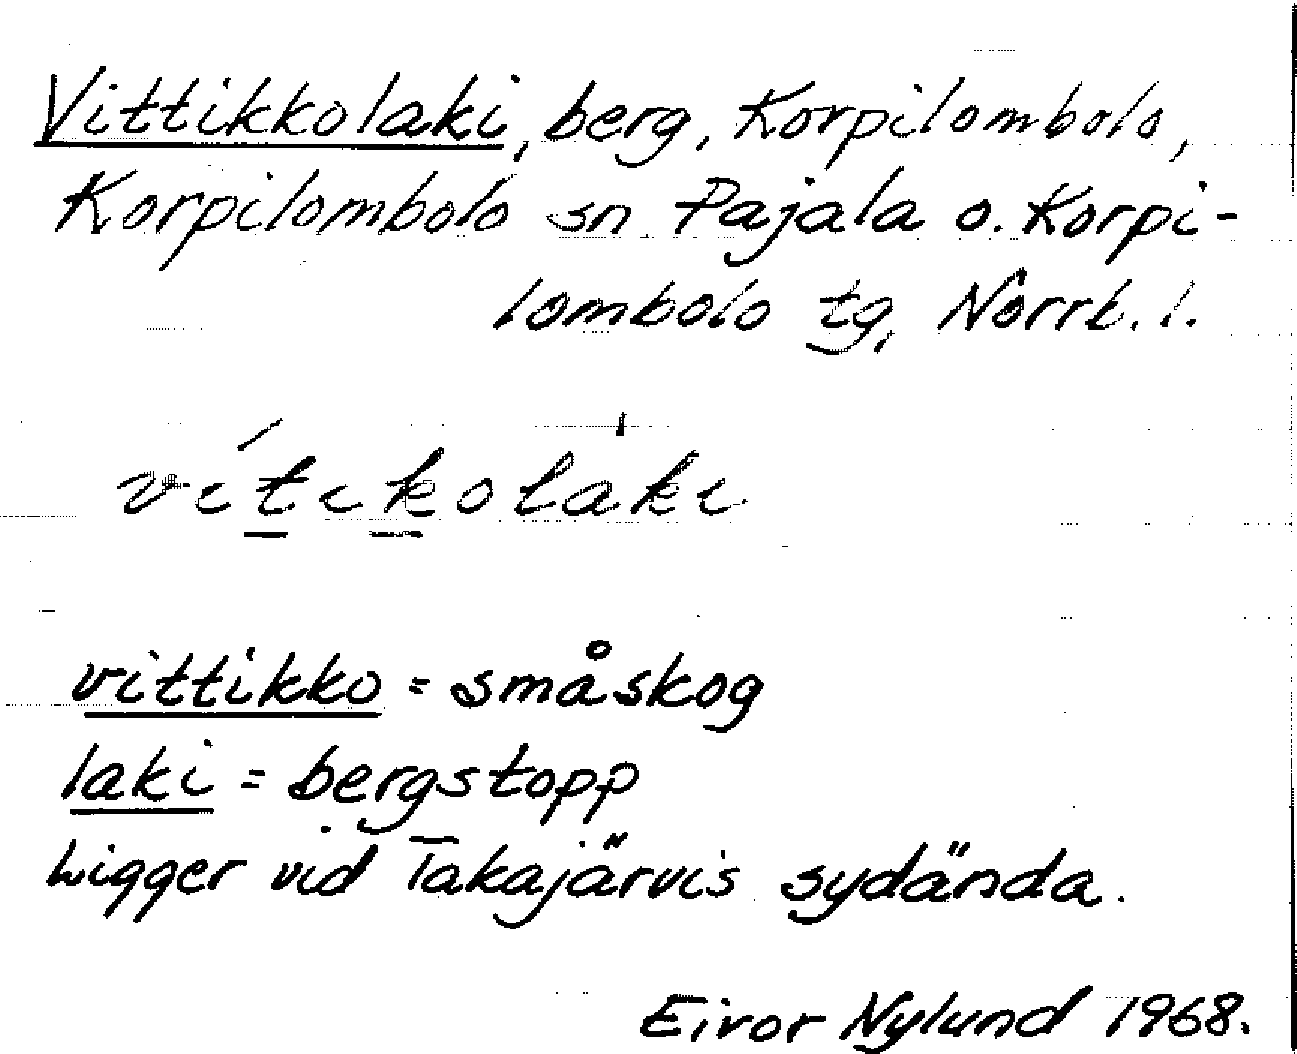 Vittikkolaki, berg, Korpilombolo,
Korpilombolo sn Pajala o. Korpi-
lombolo tg, Norrb. l.
vìtikolàki
vittikko = småskog
laki = bergstopp
Ligger vid Takajärvis sydända.
Eivor Nylund 1968.